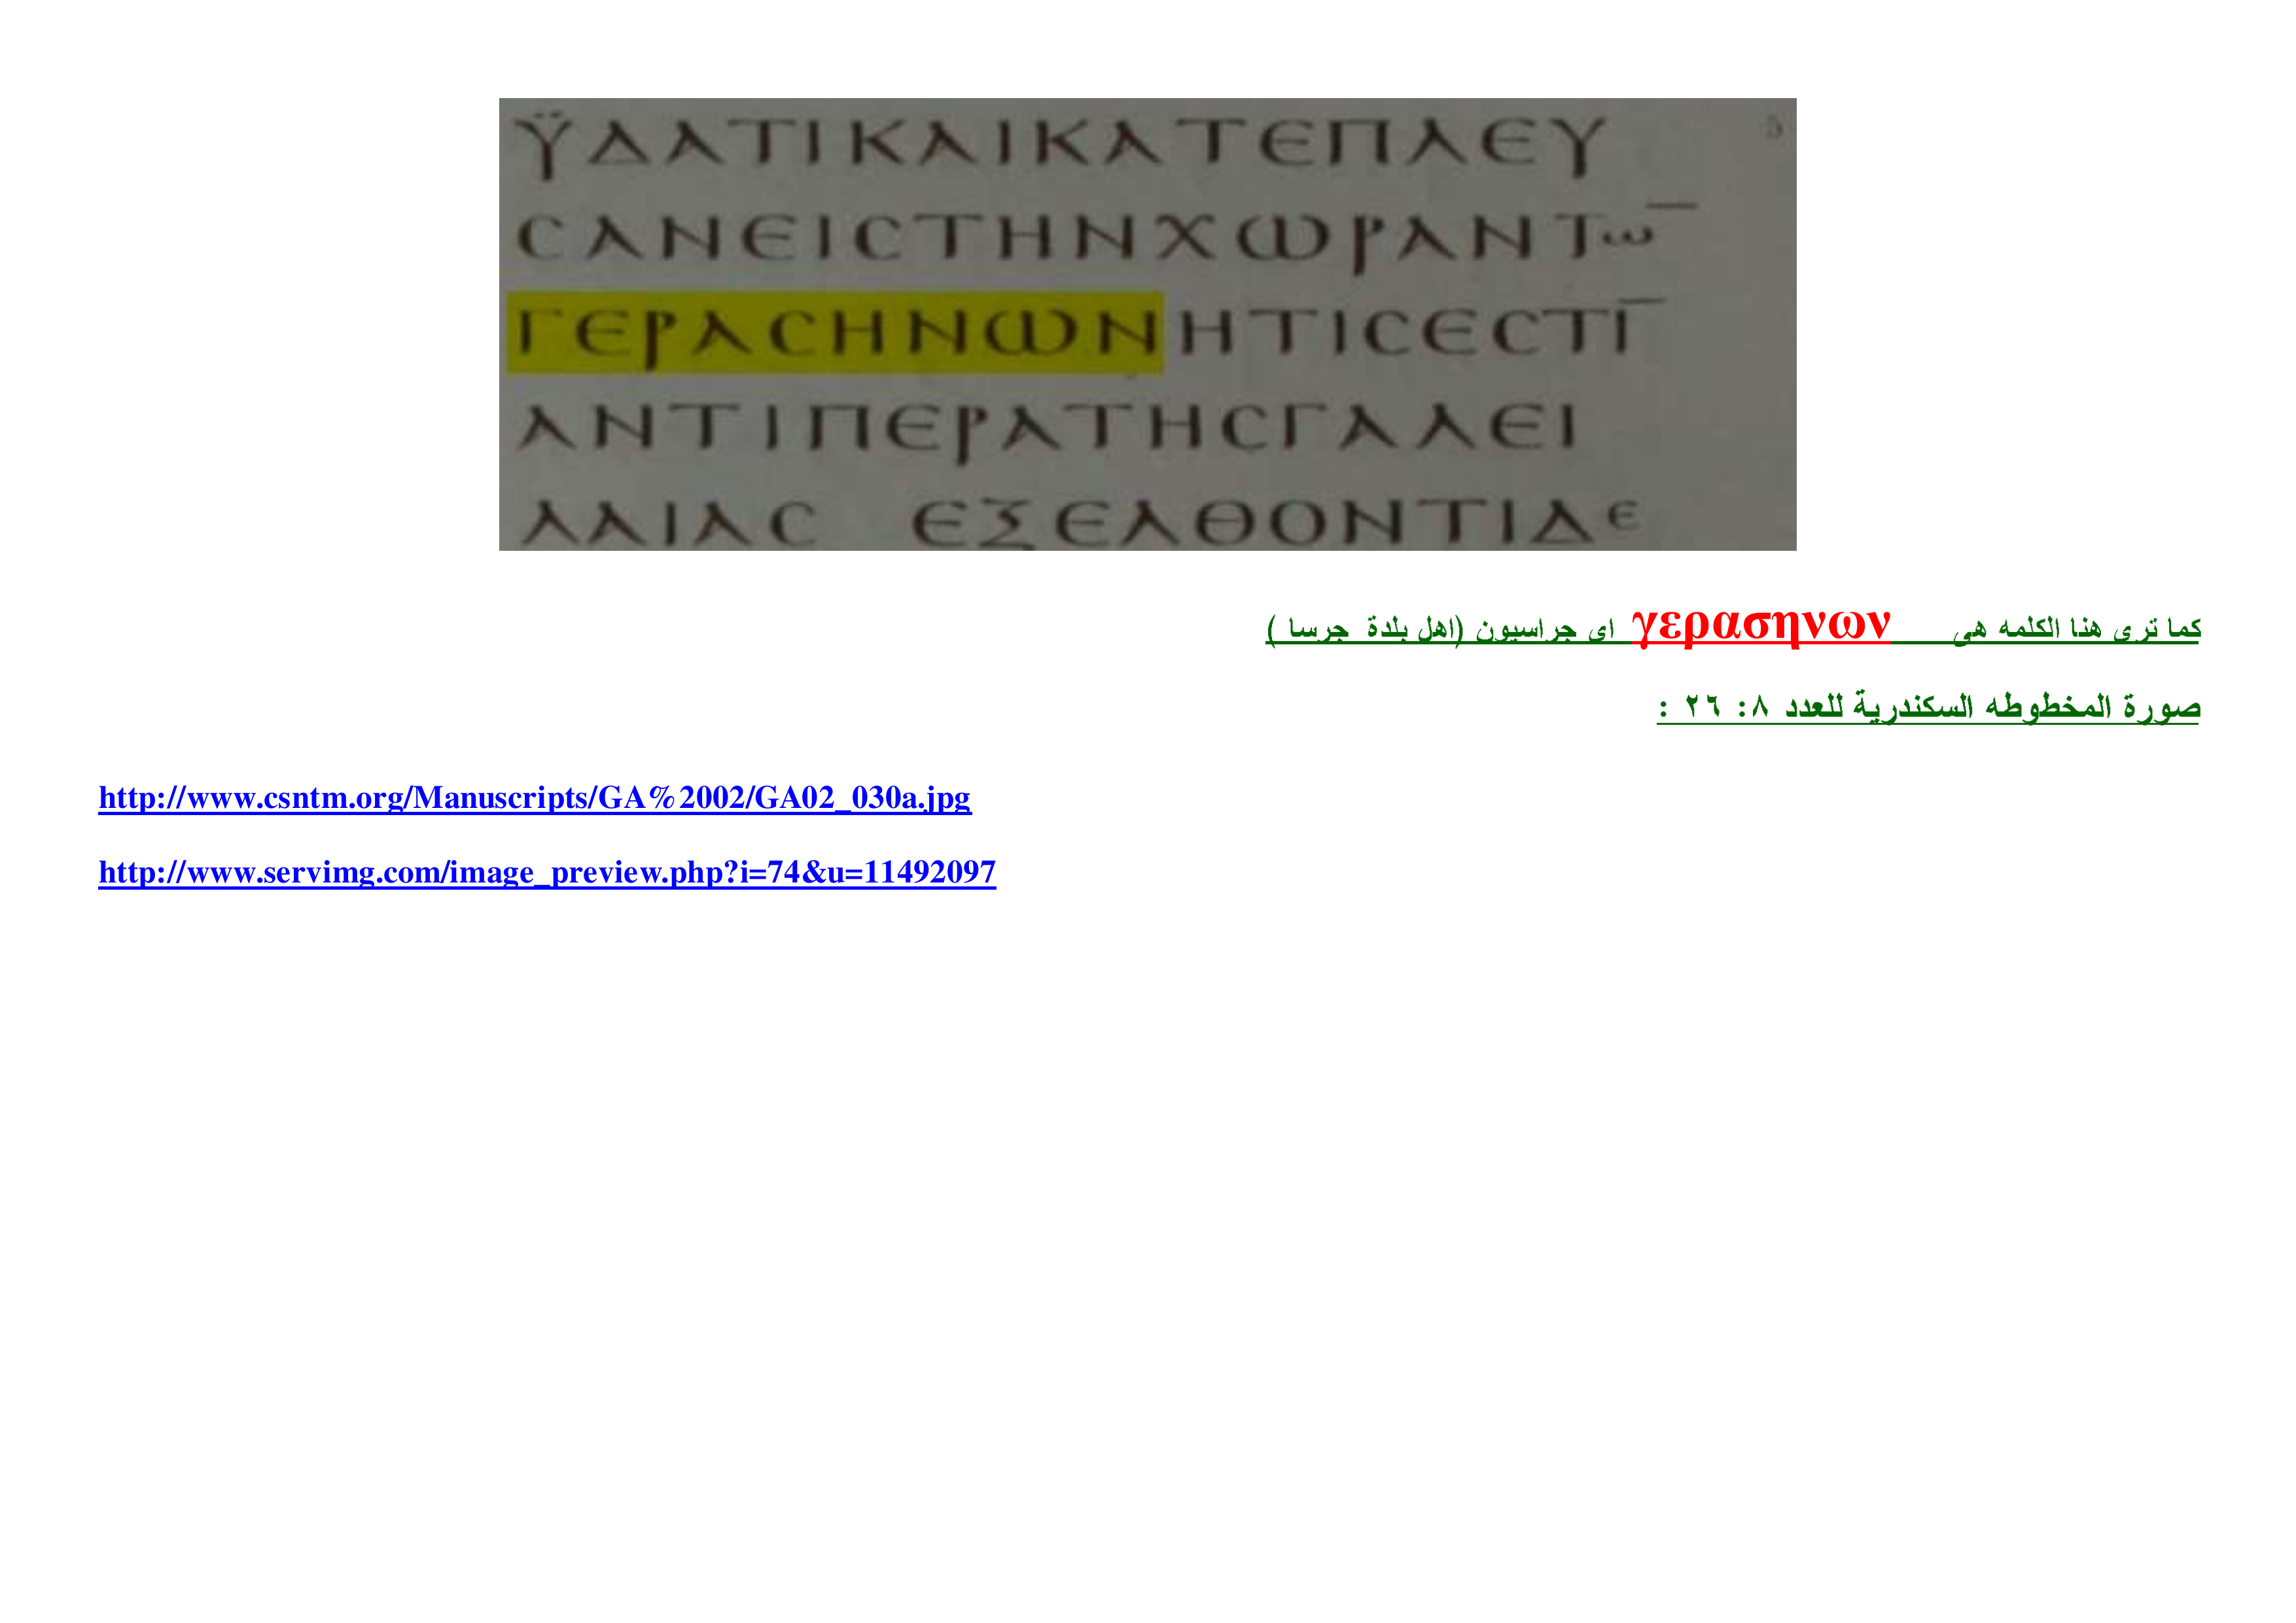 ΫΔΑΤΙΚΑΙΚΑΤΕΠΛΕΥ
ϹΑΝΕΙϹΤΗΝΧΩΡΑΝΤω̅
ΓΕΡΑϹΗΝΩΝΗΤΙϹΕϹΤΙ̅
ΑΝΤΙΠΕΡΑΤΗϹΓΑΛΕΙ
ΛΑΙΑϹ ΕΞΕΛΘΟΝΤΙΔε
كما ترى هنا الكلمه هى γερασηνων اى جراسيون (اهل بلدة جرسا )
صورة المخطوطه السكندرية للعدد ٨: ٢٦ :
http://www.csntm.org/Manuscripts/GA%2002/GA02_030a.jpg
http://www.servimg.com/image_preview.php?i=74&u=11492097